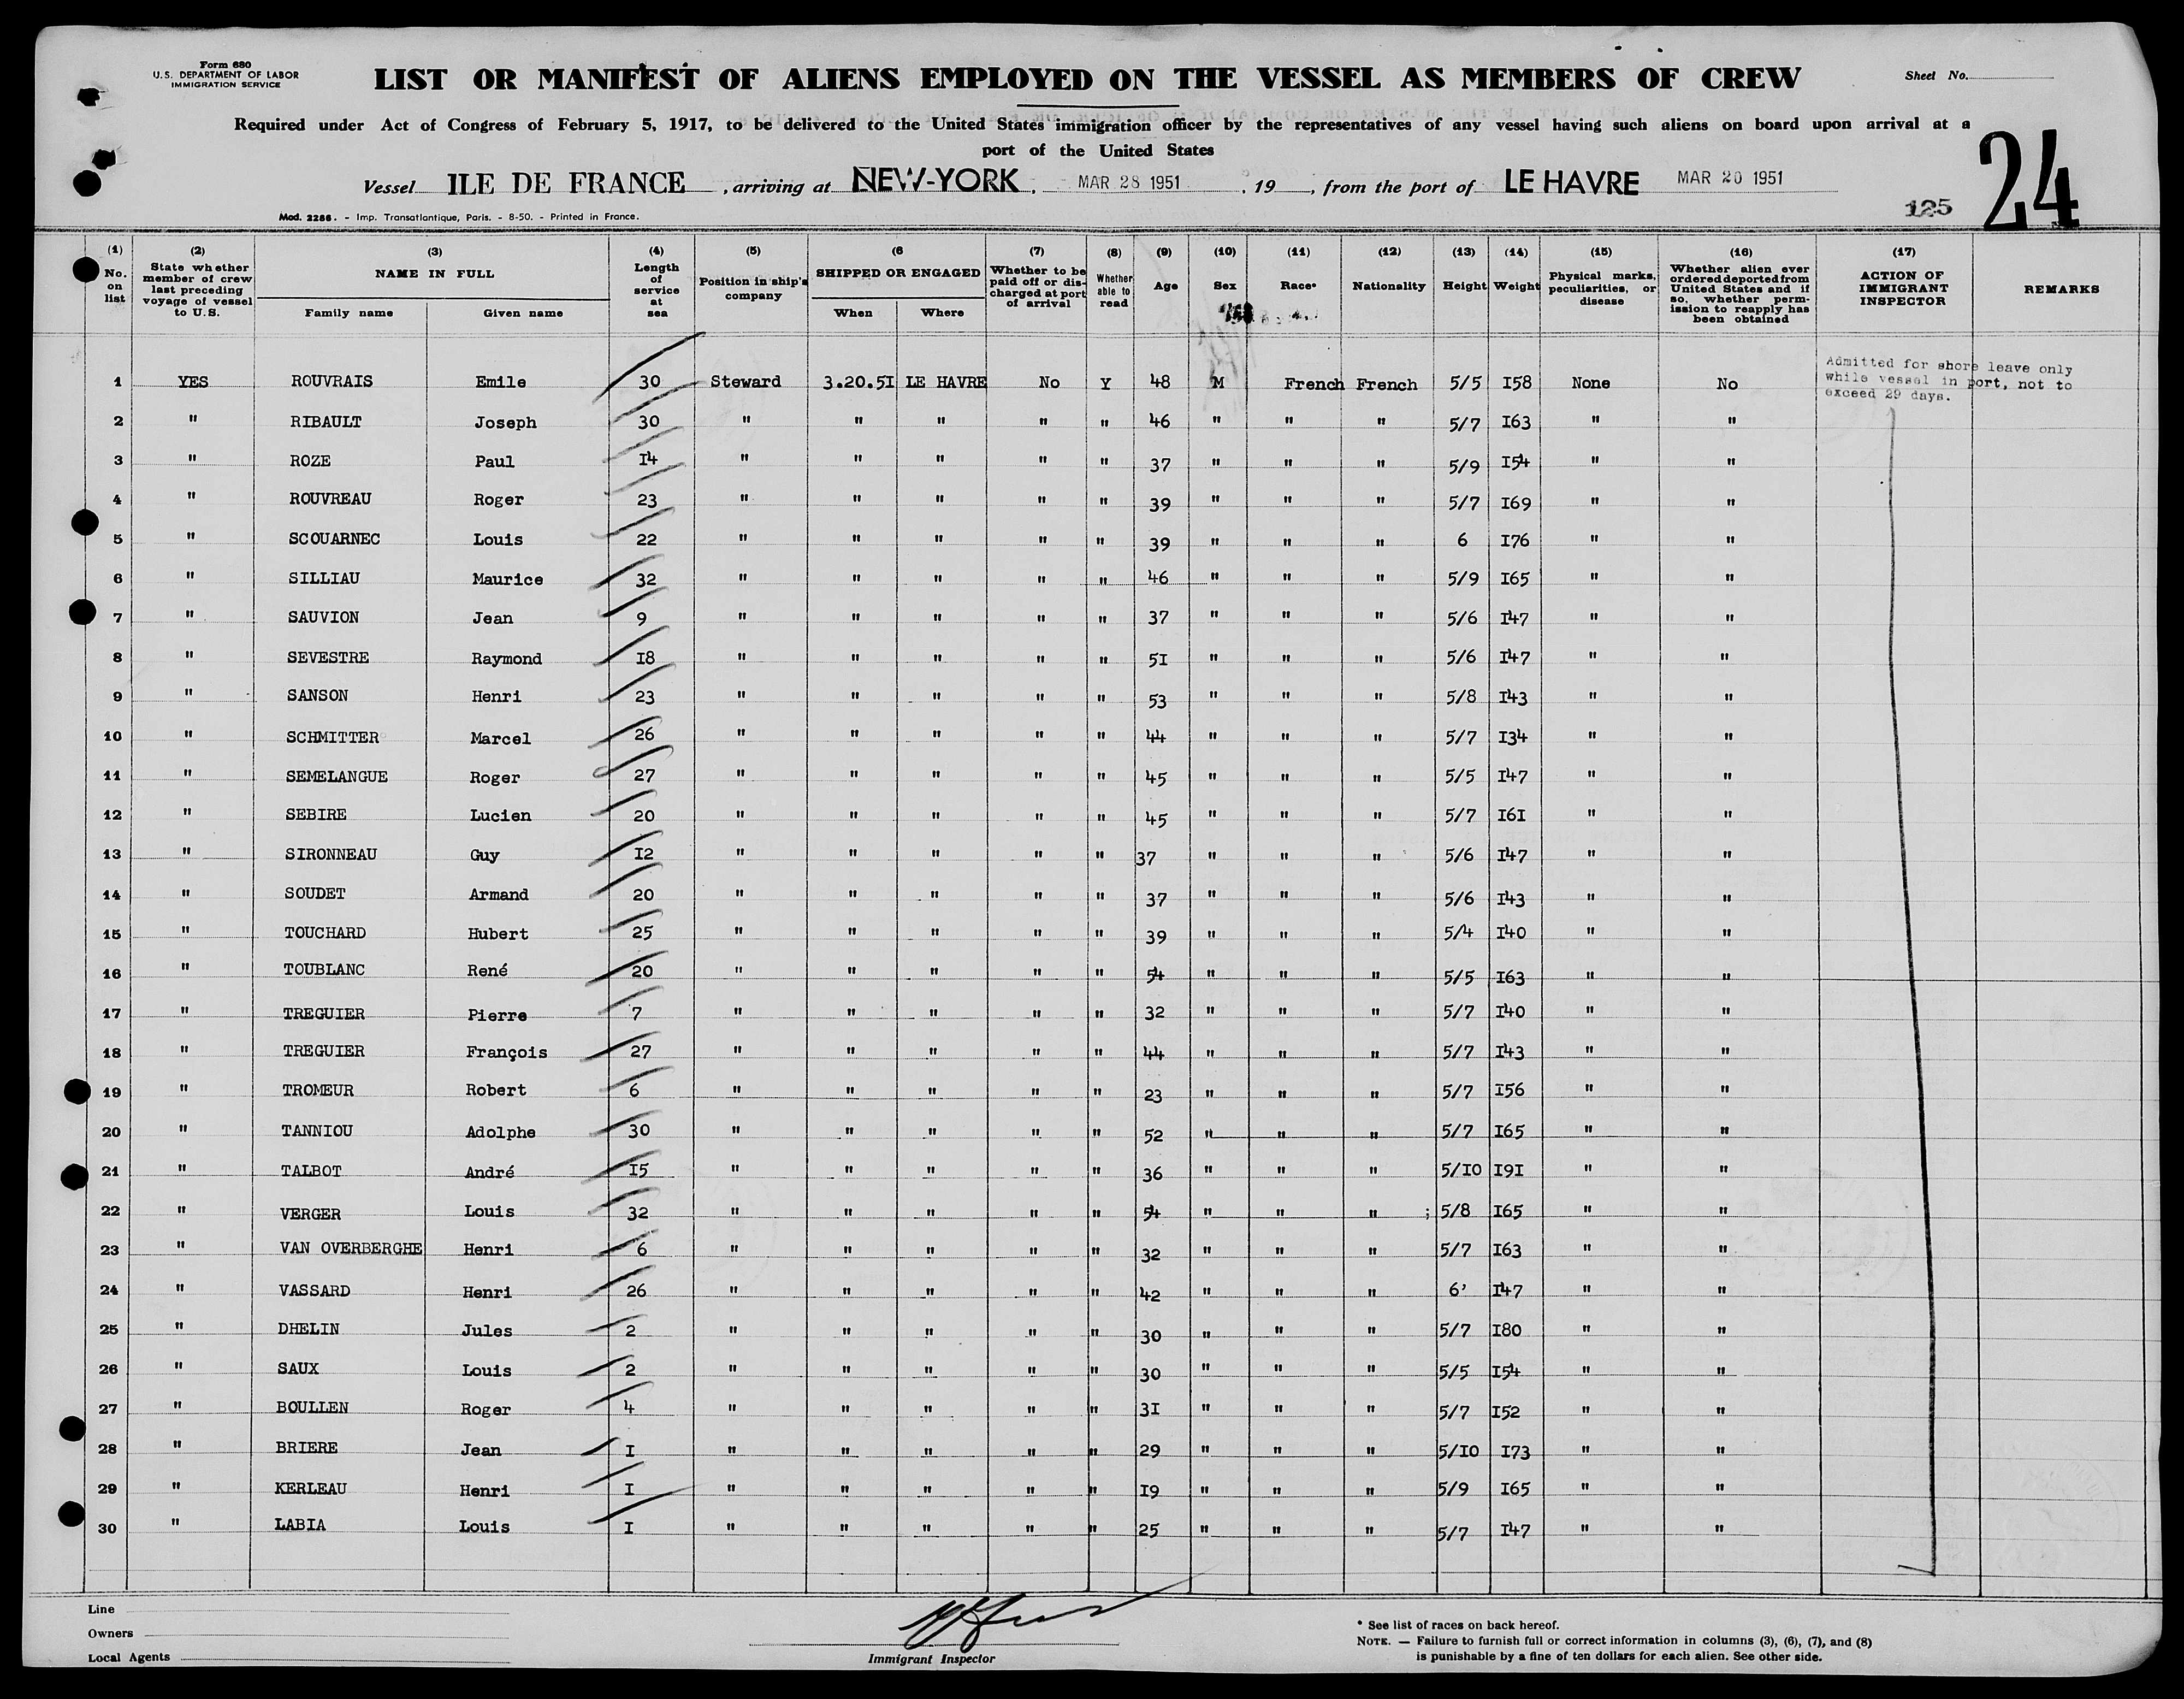 Form 680
U.S. DEPARTMENT OF LABOR
IMMIGRATION SERVICE
LIST OR MANIFEST OF ALIENS EMPLOYED ON THE VESSEL AS MEMBERS OF CREW
Sheet No.
Required under Act of Congress of February 5, 1917, to be delivered to the United States immigration officer by the representatives of any vessel having such aliens on board upon arrival at a
port of the United States
24
Vessel ILE DE FRANCE , arriving at NEW-YORK , MAR 28 1951 , 19 , from the port of LE HAVRE MAR 20 1951
125
Mod. 2286. - Imp. Transatlantique, Paris. - 8-50. - Printed in France.
(1) No. on list (2) State whether member of crew last preceding voyage of vessel to U.S. (3) NAME IN FULL Family name Given name (4) Length of service at sea (5) Position in ship's company (6 SHIPPED OR ENGAGED When Where (7) Whether to be paid off or discharged at port of arrival (8) Whether able to read (9) Age (10) Sex (11) Race* (12) Nationality (13) Height (14) Weight (15) Physical marks, peculiarities, or disease (16) Whether alien ever ordered deported from United States and if so, whether permission to reapply has been obtained (17) ACTION OF IMMIGRANT INSPECTOR REMARKS
1 YES ROUVRAIS Emile 30 Steward 3.20.5I LE HAVRE No Y 48 M French French 5/5 I58 None No Admitted for shore leave only while vessel in port, not to exceed 29 days.
2 " RIBAULT Joseph 30 " " " " " 46 " " " 5/7 I63 " "
3 " ROZE Paul I4 " " " " " 37 " " " 5/9 I54 " "
4 " ROUVREAU Roger 23 " " " " " 39 " " " 5/7 I69 " "
5 " SCOUARNEC Louis 22 " " " " " 39 " " " 6 I76 " "
6 " SILLIAU Maurice 32 " " " " " 46 " " " 5/9 I65 " "
7 " SAUVION Jean 9 " " " " " 37 " " " 5/6 I47 " "
8 " SEVESTRE Raymond I8 " " " " " 5I " " " 5/6 I47 " "
9 " SANSON Henri 23 " " " " " 53 " " " 5/8 I43 " "
10 " SCHMITTER Marcel 26 " " " " " 44 " " " 5/7 I34 " "
11 " SEMELANGUE Roger 27 " " " " " 45 " " " 5/5 I47 " "
12 " SEBIRE Lucien 20 " " " " " 45 " " " 5/7 I6I " "
13 " SIRONNEAU Guy I2 " " " " " 37 " " " 5/6 I47 " "
14 " SOUDET Armand 20 " " " " " 37 " " " 5/6 I43 " "
15 " TOUCHARD Hubert 25 " " " " " 39 " " " 5/4 I40 " "
16 " TOUBLANC René 20 " " " " " 54 " " " 5/5 I63 " "
17 " TREGUIER Pierre 7 " " " " " 32 " " " 5/7 I40 " "
18 " TREGUIER François 27 " " " " " 44 " " " 5/7 I43 " "
19 " TROMEUR Robert 6 " " " " " 23 " " " 5/7 I56 " "
20 " TANNIOU Adolphe 30 " " " " " 52 " " " 5/7 I65 " "
21 " TALBOT André I5 " " " " " 36 " " " 5/IO I9I " "
22 " VERGER Louis 32 " " " " " 54 " " " ; 5/8 I65 " "
23 " VAN OVERBERGHE Henri 6 " " " " " 32 " " " 5/7 I63 " "
24 " VASSARD Henri 26 " " " " " 42 " " " 6' I47 " "
25 " DHELIN Jules 2 " " " " " 30 " " " 5/7 I80 " "
26 " SAUX Louis 2 " " " " " 30 " " " 5/5 I54 " "
27 " BOULLEN Roger 4 " " " " " 3I " " " 5/7 I52 " "
28 " BRIERE Jean I " " " " " 29 " " " 5/IO I73 " "
29 " KERLEAU Henri I " " " " " I9 " " " 5/9 I65 " "
30 " LABIA Louis I " " " " " 25 " " " 5/7 I47 " "
Line
Owners
Local Agents
Immigrant Inspector
* See list of races on back hereof.
NOTE. — Failure to furnish full or correct information in columns (3), (6), (7), and (8)
is punishable by a fine of ten dollars for each alien. See other side.